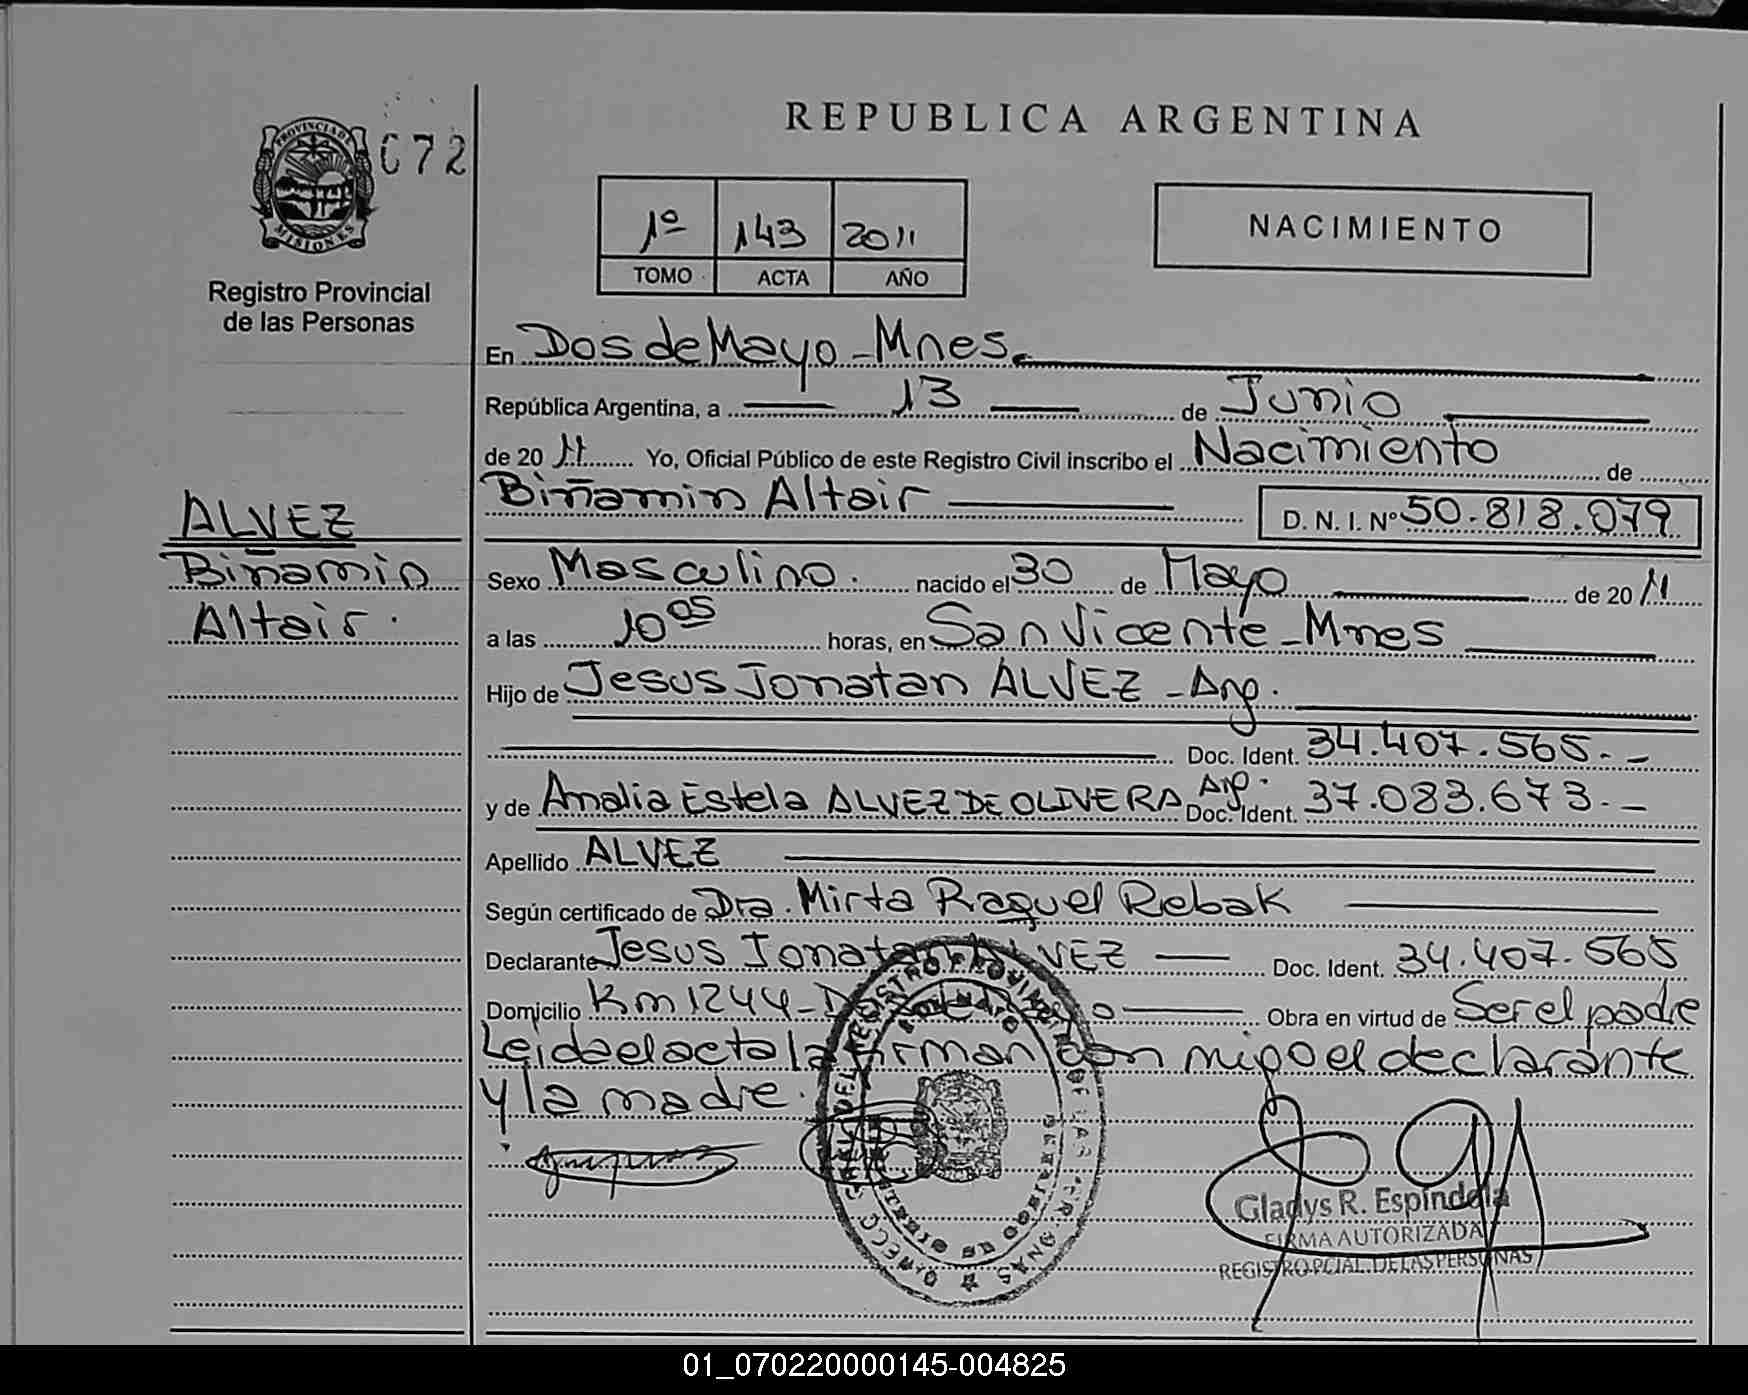 REPUBLICA ARGENTINA
PROVINCIA DE MISIONES
072
1º 143 2011
TOMO ACTA AÑO
NACIMIENTO
Registro Provincial
de las Personas
En Dos de Mayo - Mnes.
República Argentina, a 13 de Junio
de 2011 Yo, Oficial Público de este Registro Civil inscribo el Nacimiento de
Biñamin Altair D. N. I. Nº 50.818.079
ALVEZ
Biñamin
Altair.
Sexo Masculino. nacido el 30 de Mayo de 2011
a las 10 05 horas, en San Vicente - Mnes
Hijo de Jesus Jonatan ALVEZ - Arg.
Doc. Ident. 34.407.565.-
y de Analia Estela ALVEZ DE OLIVERA Arg. Doc. Ident. 37.083.673.-
Apellido ALVEZ
Según certificado de Dra. Mirta Raquel Rebak
Declarante Jesus Jonatan ALVEZ Doc. Ident. 34.407.565
Domicilio Km 1244 - Dos de Mayo Obra en virtud de Ser el padre
Leida el acta la firman con migo el declarante
y la madre.
Gladys R. Espindola
FIRMA AUTORIZADA
REGISTRO PCIAL. DE LAS PERSONAS
01_070220000145-004825